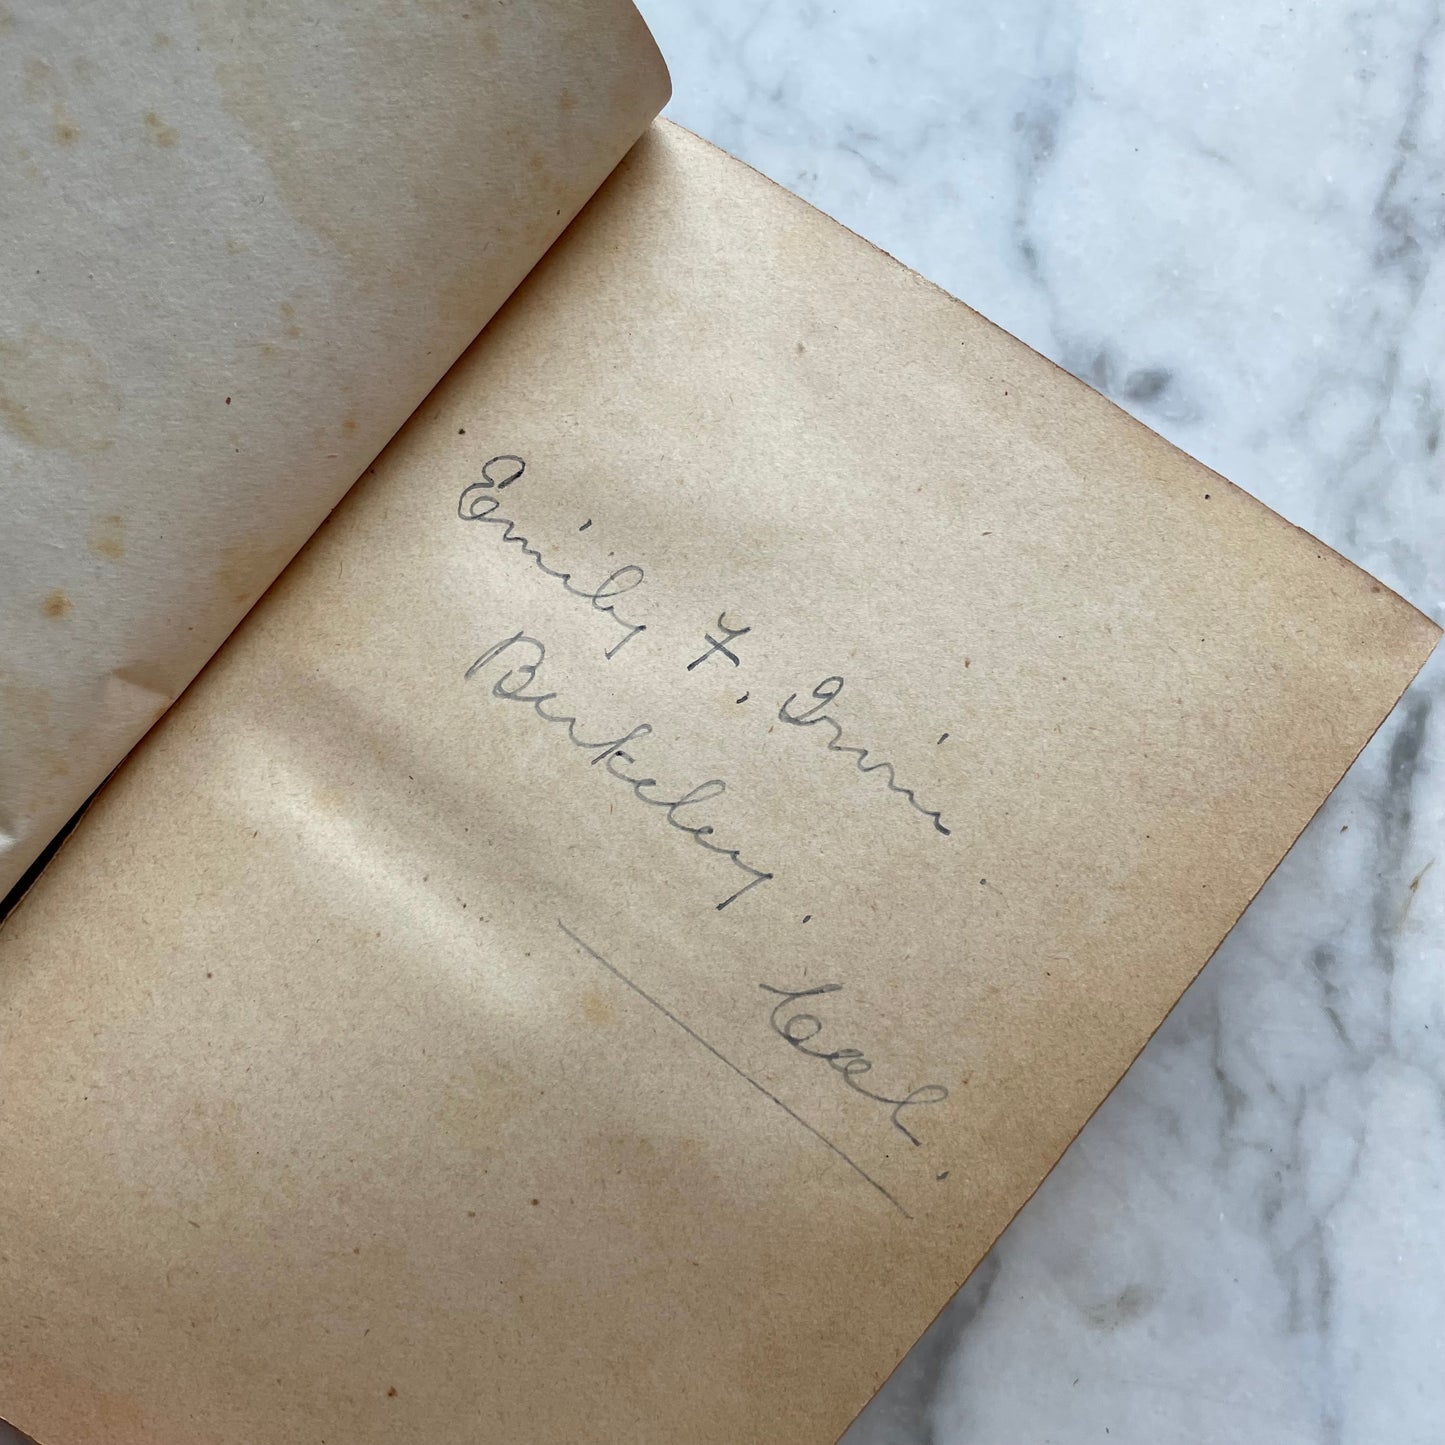 Emily F. Irvin
Berkeley.
Cal.